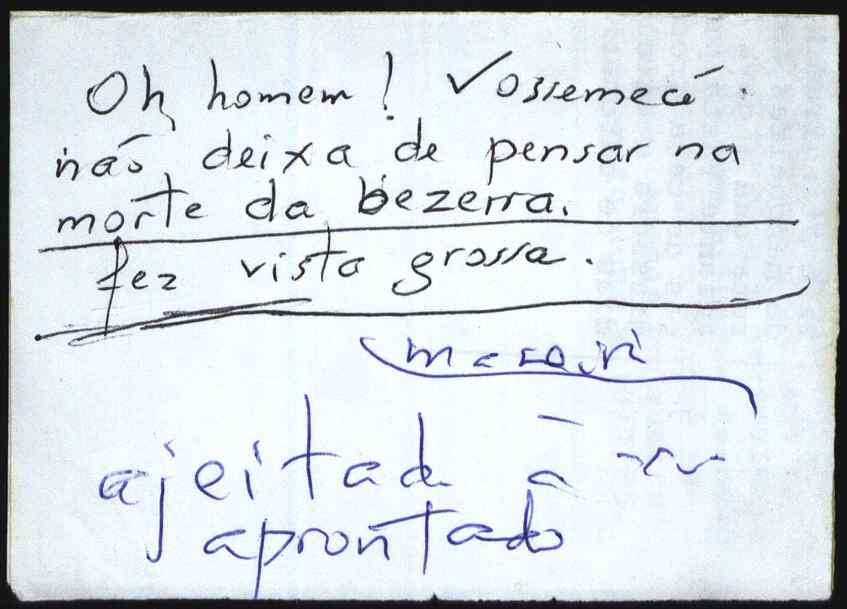 Oh, homem! Vossemecê
não deixa de pensar na
morte da bezerra.
fez vista grossa.
ajeitad à
aprontado